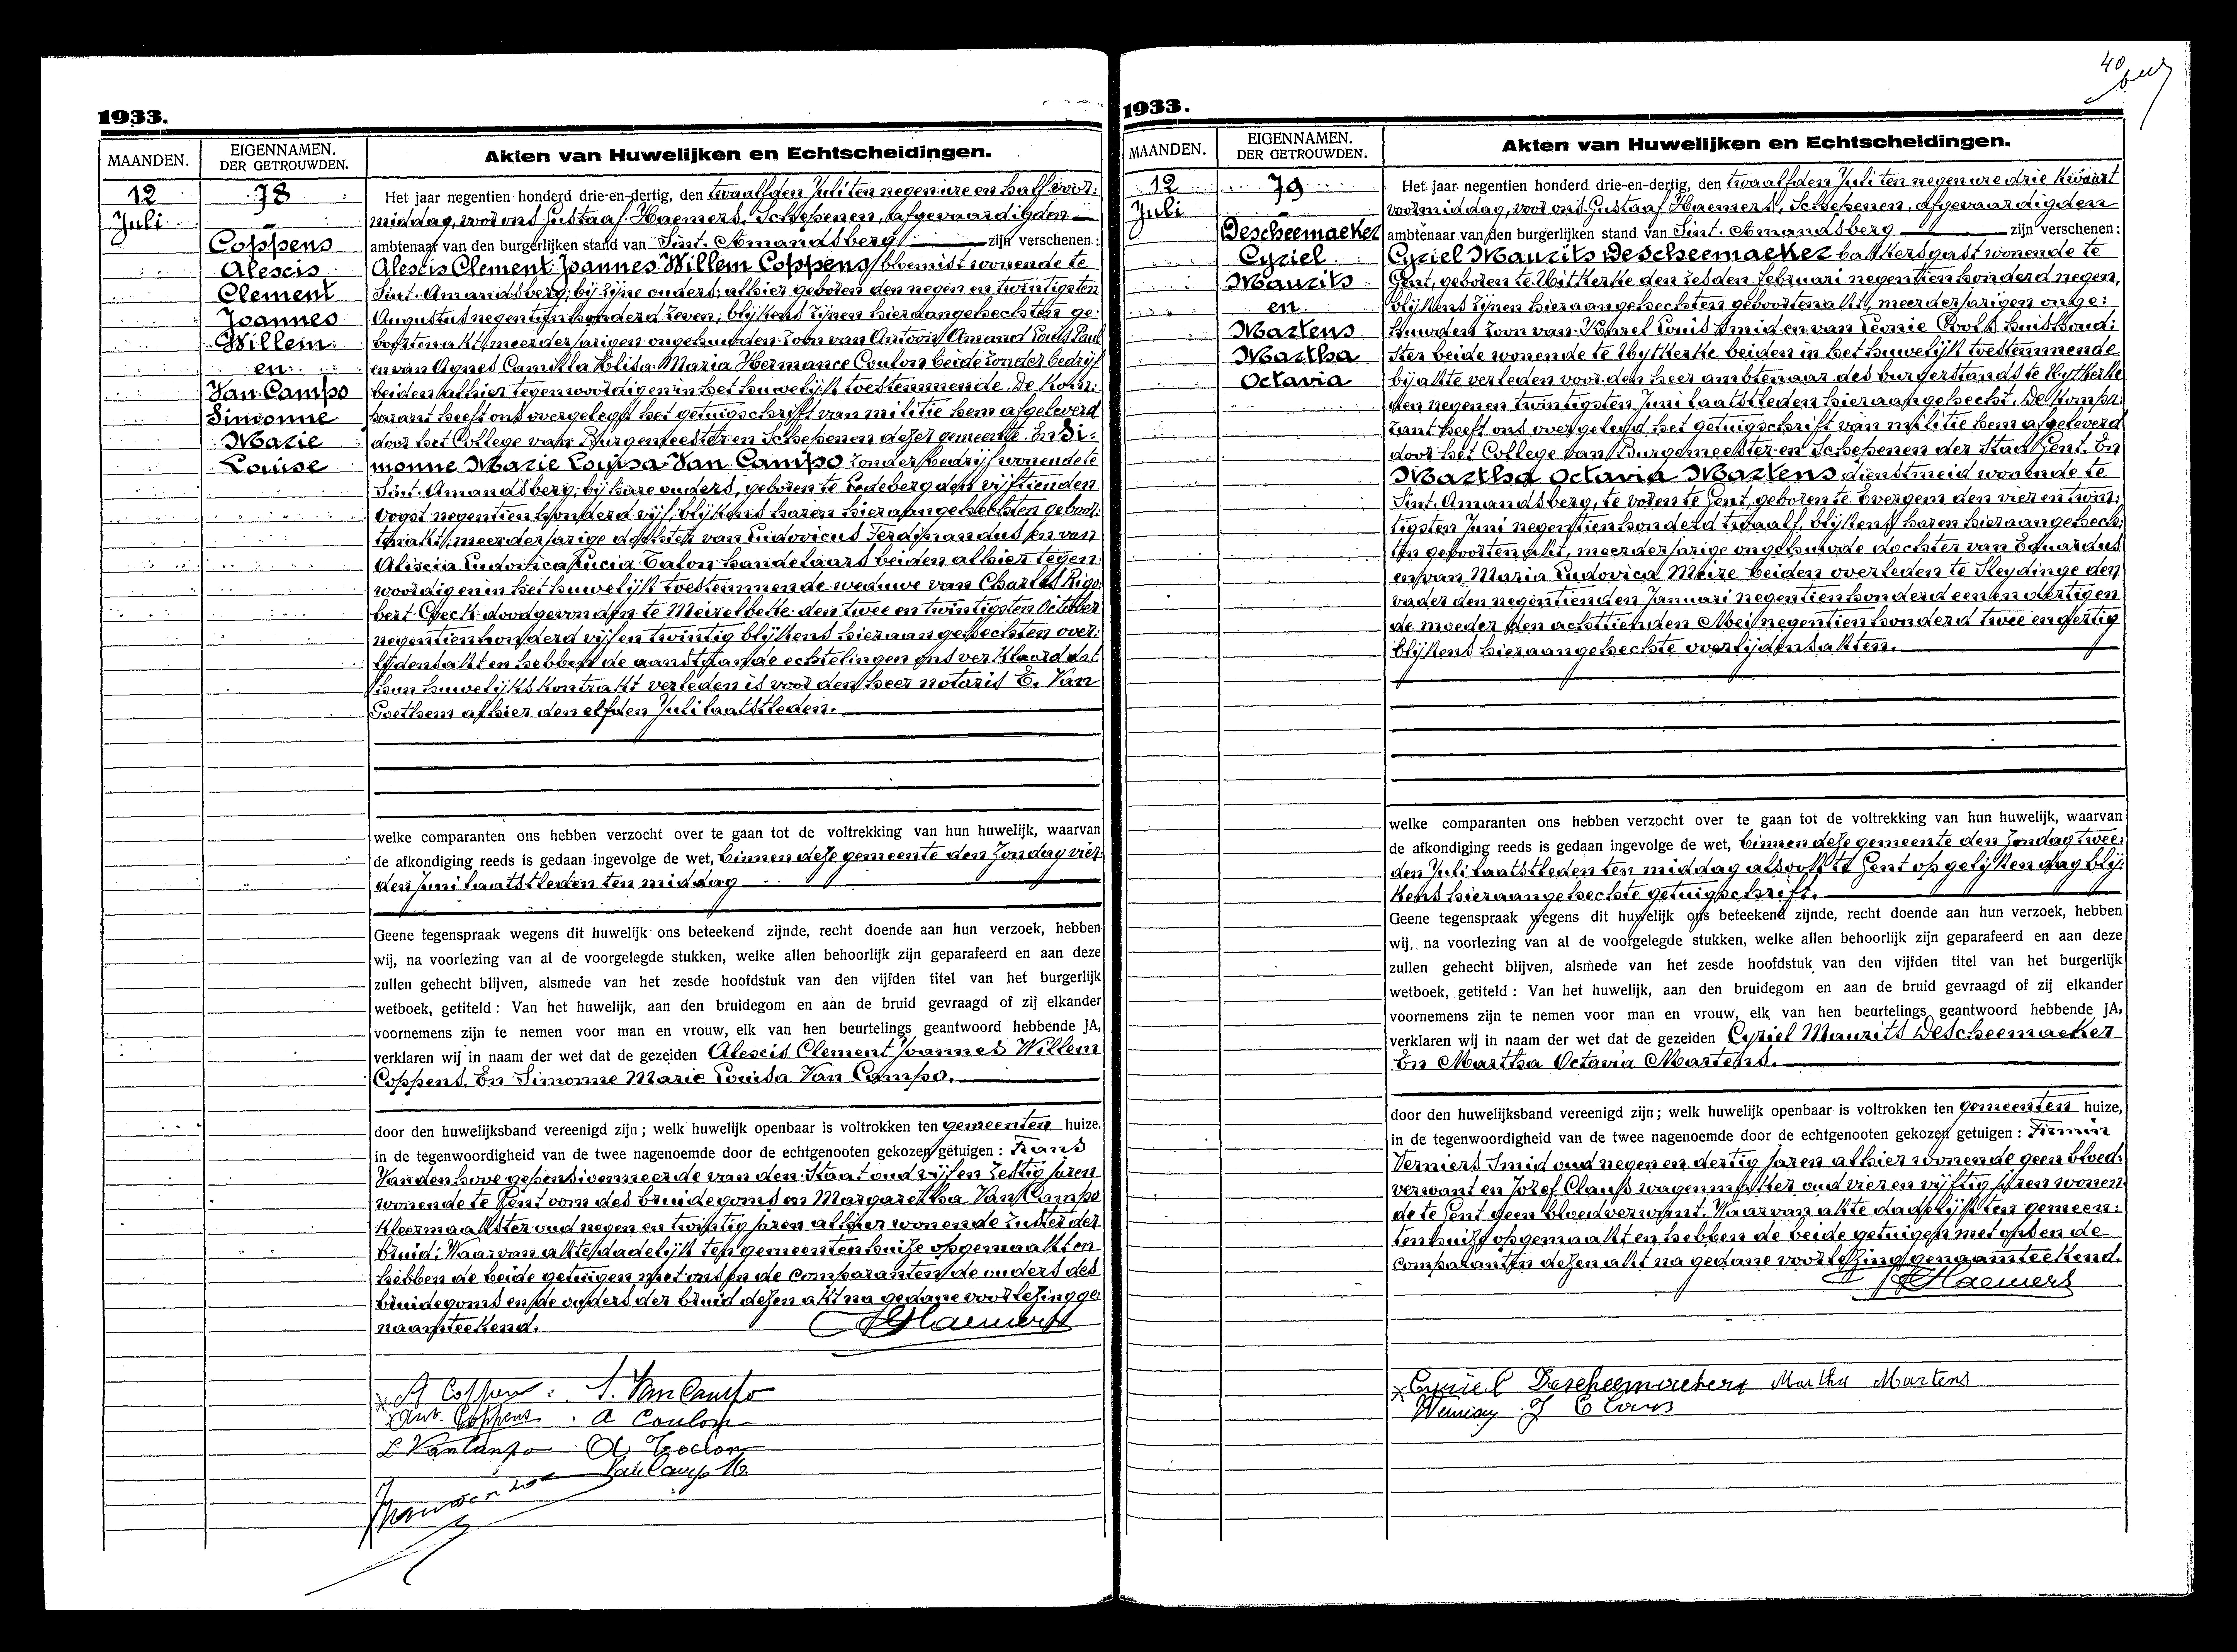 1933.
MAANDEN.
EIGENNAMEN.
DER GETROUWDEN.
Akten van Huwelijken en Echtscheidingen.
12
Juli
78
Coppens
Alescis
Clement
Joannes
Willem
en
Van Campo
Simonne
Marie
Louise
Het jaar negentien honderd drie-en-dertig, den twaalfden Juli ten negen ure en half voor:
middag, voor ons Gustaaf Haemers, Schepenen, afgevaardigden
ambtenaar van den burgerlijken stand van Sint. Amandsberg zijn verschenen:
Alescis Clement Joannes Willem Coppens bloemist wonende te
Sint. Amandsberg; bij zijne ouders; alhier geboren den negen en twintigsten
Augustus negentien honderd zeven, blijkens zijnen hieraangehechten ge:
boortenakt, meerderjarigen ongehuwden zoon van Antoon Amand Louis Paul
en van Agnes Camilla Elisa Maria Hermance Coulon beide zonder bedrijf
beiden alhier tegenwoordig en in het huwelijk toestemmende. De Kom:
parant heeft ons overgelegd het getuigschrift van militie hem afgeleverd
door het College van Burgemeester en Schepenen dezer gemeente. En Si:
monne Marie Louisa Van Campo zonder bedrijf wonende te
Sint. Amandsberg; bij hare ouders, geboren te Ledeberg den vijftienden
Oogst negentien honderd vijf, blijkens haren hieraangehechten geboor:
tenakt, meerderjarige dochter van Ludovicus Ferdinandus en van
Aliscia Ludovica Lucia Talon handelaars beiden alhier tegen:
woordig en in het huwelijk toestemmende weduwe van Charles Rigo:
bert Coeck doodgevonden te Meirelbeke den twee en twintigsten October
negentien honderd vijf en twintig blijkens hieraangehechten over:
lijdensakt en hebben de aanstaande echtelingen ons verklaard dat
hun huwelijkskontrakt verleden is voor den heer notaris E. Van
Goethem alhier den elfden Juli laatstleden.
welke comparanten ons hebben verzocht over te gaan tot de voltrekking van hun huwelijk, waarvan
de afkondiging reeds is gedaan ingevolge de wet, binnen deze gemeente den Zondag vier:
den Juni laatstleden ten middag
Geene tegenspraak wegens dit huwelijk ons beteekend zijnde, recht doende aan hun verzoek, hebben
wij, na voorlezing van al de voorgelegde stukken, welke allen behoorlijk zijn geparafeerd en aan deze
zullen gehecht blijven, alsmede van het zesde hoofdstuk van den vijfden titel van het burgerlijk
wetboek, getiteld : Van het huwelijk, aan den bruidegom en aan de bruid gevraagd of zij elkander
voornemens zijn te nemen voor man en vrouw, elk van hen beurtelings geantwoord hebbende JA,
verklaren wij in naam der wet dat de gezeiden Alescis Clement Joannes Willem
Coppens. En Simonne Marie Louisa Van Campo.
door den huwelijksband vereenigd zijn ; welk huwelijk openbaar is voltrokken ten gemeenten huize,
in de tegenwoordigheid van de twee nagenoemde door de echtgenooten gekozen getuigen : Frans
Vandenhove gepensionneerde van den Staat oud vijf en zestig jaren
wonende te Gent oom des bruidegoms en Margaretha Van Campo
Kleermaakster oud negen en twintig jaren alhier wonende zuster der
bruid: Waarvan akte dadelijk ten gemeentenhuize opgemaakt en
hebben de beide getuigen met ons en de comparanten de ouders des
bruidegoms en de ouders der bruid dezen akt na gedane voorlezing ge:
naamteekend.
GHaemers
A Coppens S. Van Campo
Ant. Coppens A Coulon
L Van Campo A Talon
Van Campo M.
1933.
40
MAANDEN.
EIGENNAMEN.
DER GETROUWDEN.
Akten van Huwelijken en Echtscheidingen.
12
Juli
79
Descheemaeker
Cyriel
Maurits
en
Martens
Martha
Octavia
Het jaar negentien honderd drie-en-dertig, den twaalfden Juli ten negen ure drie Kwaart
voormiddag, voor ons Gustaaf Haemers, Schepenen, afgevaardigden
ambtenaar van den burgerlijken stand van Sint. Amandsberg zijn verschenen:
Cyriel Maurits Descheemaeker bakkersgast wonende te
Gent, geboren te Uitkerke den zesden februari negentien honderd negen,
blijkens zijnen hieraangehechten geboortenakt, meerderjarigen onge:
huwden zoon van Karel Louis smid en van Leonie Cools huishoud:
ster beide wonende te Uytkerke beiden in het huwelijk toestemmende
bij akte verleden voor den heer ambtenaar des burgerstands te Uytkerke
den negenen twintigsten Juni laatstleden hieraangehecht. De Kompa:
rant heeft ons overgelegd het getuigschrift van militie hem afgeleverd
door het College van Burgemeester en Schepenen der Stad Gent. En
Martha Octavia Martens dienstmeid wonende te
Sint. Amandsberg, te voren te Gent, geboren te Evergem den vier en twin:
tigsten Juni negentien honderd twaalf, blijkens haren hieraangehech:
ten geboortenakt, meerderjarige ongehuwde dochter van Eduardus
en van Maria Ludovica Meire beiden overleden te Sleydinge den
vader den negentienden Januari negentien honderd een en veertig en
de moeder den achttienden Mei negentien honderd twee en dertig
blijkens hieraangehechte overlijdensakten.
welke comparanten ons hebben verzocht over te gaan tot de voltrekking van hun huwelijk, waarvan
de afkondiging reeds is gedaan ingevolge de wet, binnen deze gemeente den Zondag twee:
den Juli laatstleden ten middag alsook te Gent op gelijken dag blij:
kens hieraangehechte getuigschrift.
Geene tegenspraak wegens dit huwelijk ons beteekend zijnde, recht doende aan hun verzoek, hebben
wij, na voorlezing van al de voorgelegde stukken, welke allen behoorlijk zijn geparafeerd en aan deze
zullen gehecht blijven, alsmede van het zesde hoofdstuk van den vijfden titel van het burgerlijk
wetboek, getiteld : Van het huwelijk, aan den bruidegom en aan de bruid gevraagd of zij elkander
voornemens zijn te nemen voor man en vrouw, elk van hen beurtelings geantwoord hebbende JA,
verklaren wij in naam der wet dat de gezeiden Cyriel Maurits Descheemaeker
En Martha Octavia Martens.
door den huwelijksband vereenigd zijn ; welk huwelijk openbaar is voltrokken ten gemeenten huize,
in de tegenwoordigheid van de twee nagenoemde door de echtgenooten gekozen getuigen : Firmin
Verniers Smid oud negen en dertig jaren alhier wonende geen bloed:
verwant en Jozef Claus wagenmaker oud vier en vijftig jaren wonen:
de te Gent geen bloedverwant. Waarvan akte dadelijk ten gemeen:
tenhuize opgemaakt en hebben de beide getuigen met ons en de
comparanten dezen akt na gedane voorlezing genaamteekend.
GHaemers
Cyriel Descheemaeker Martha Martens
J Claus